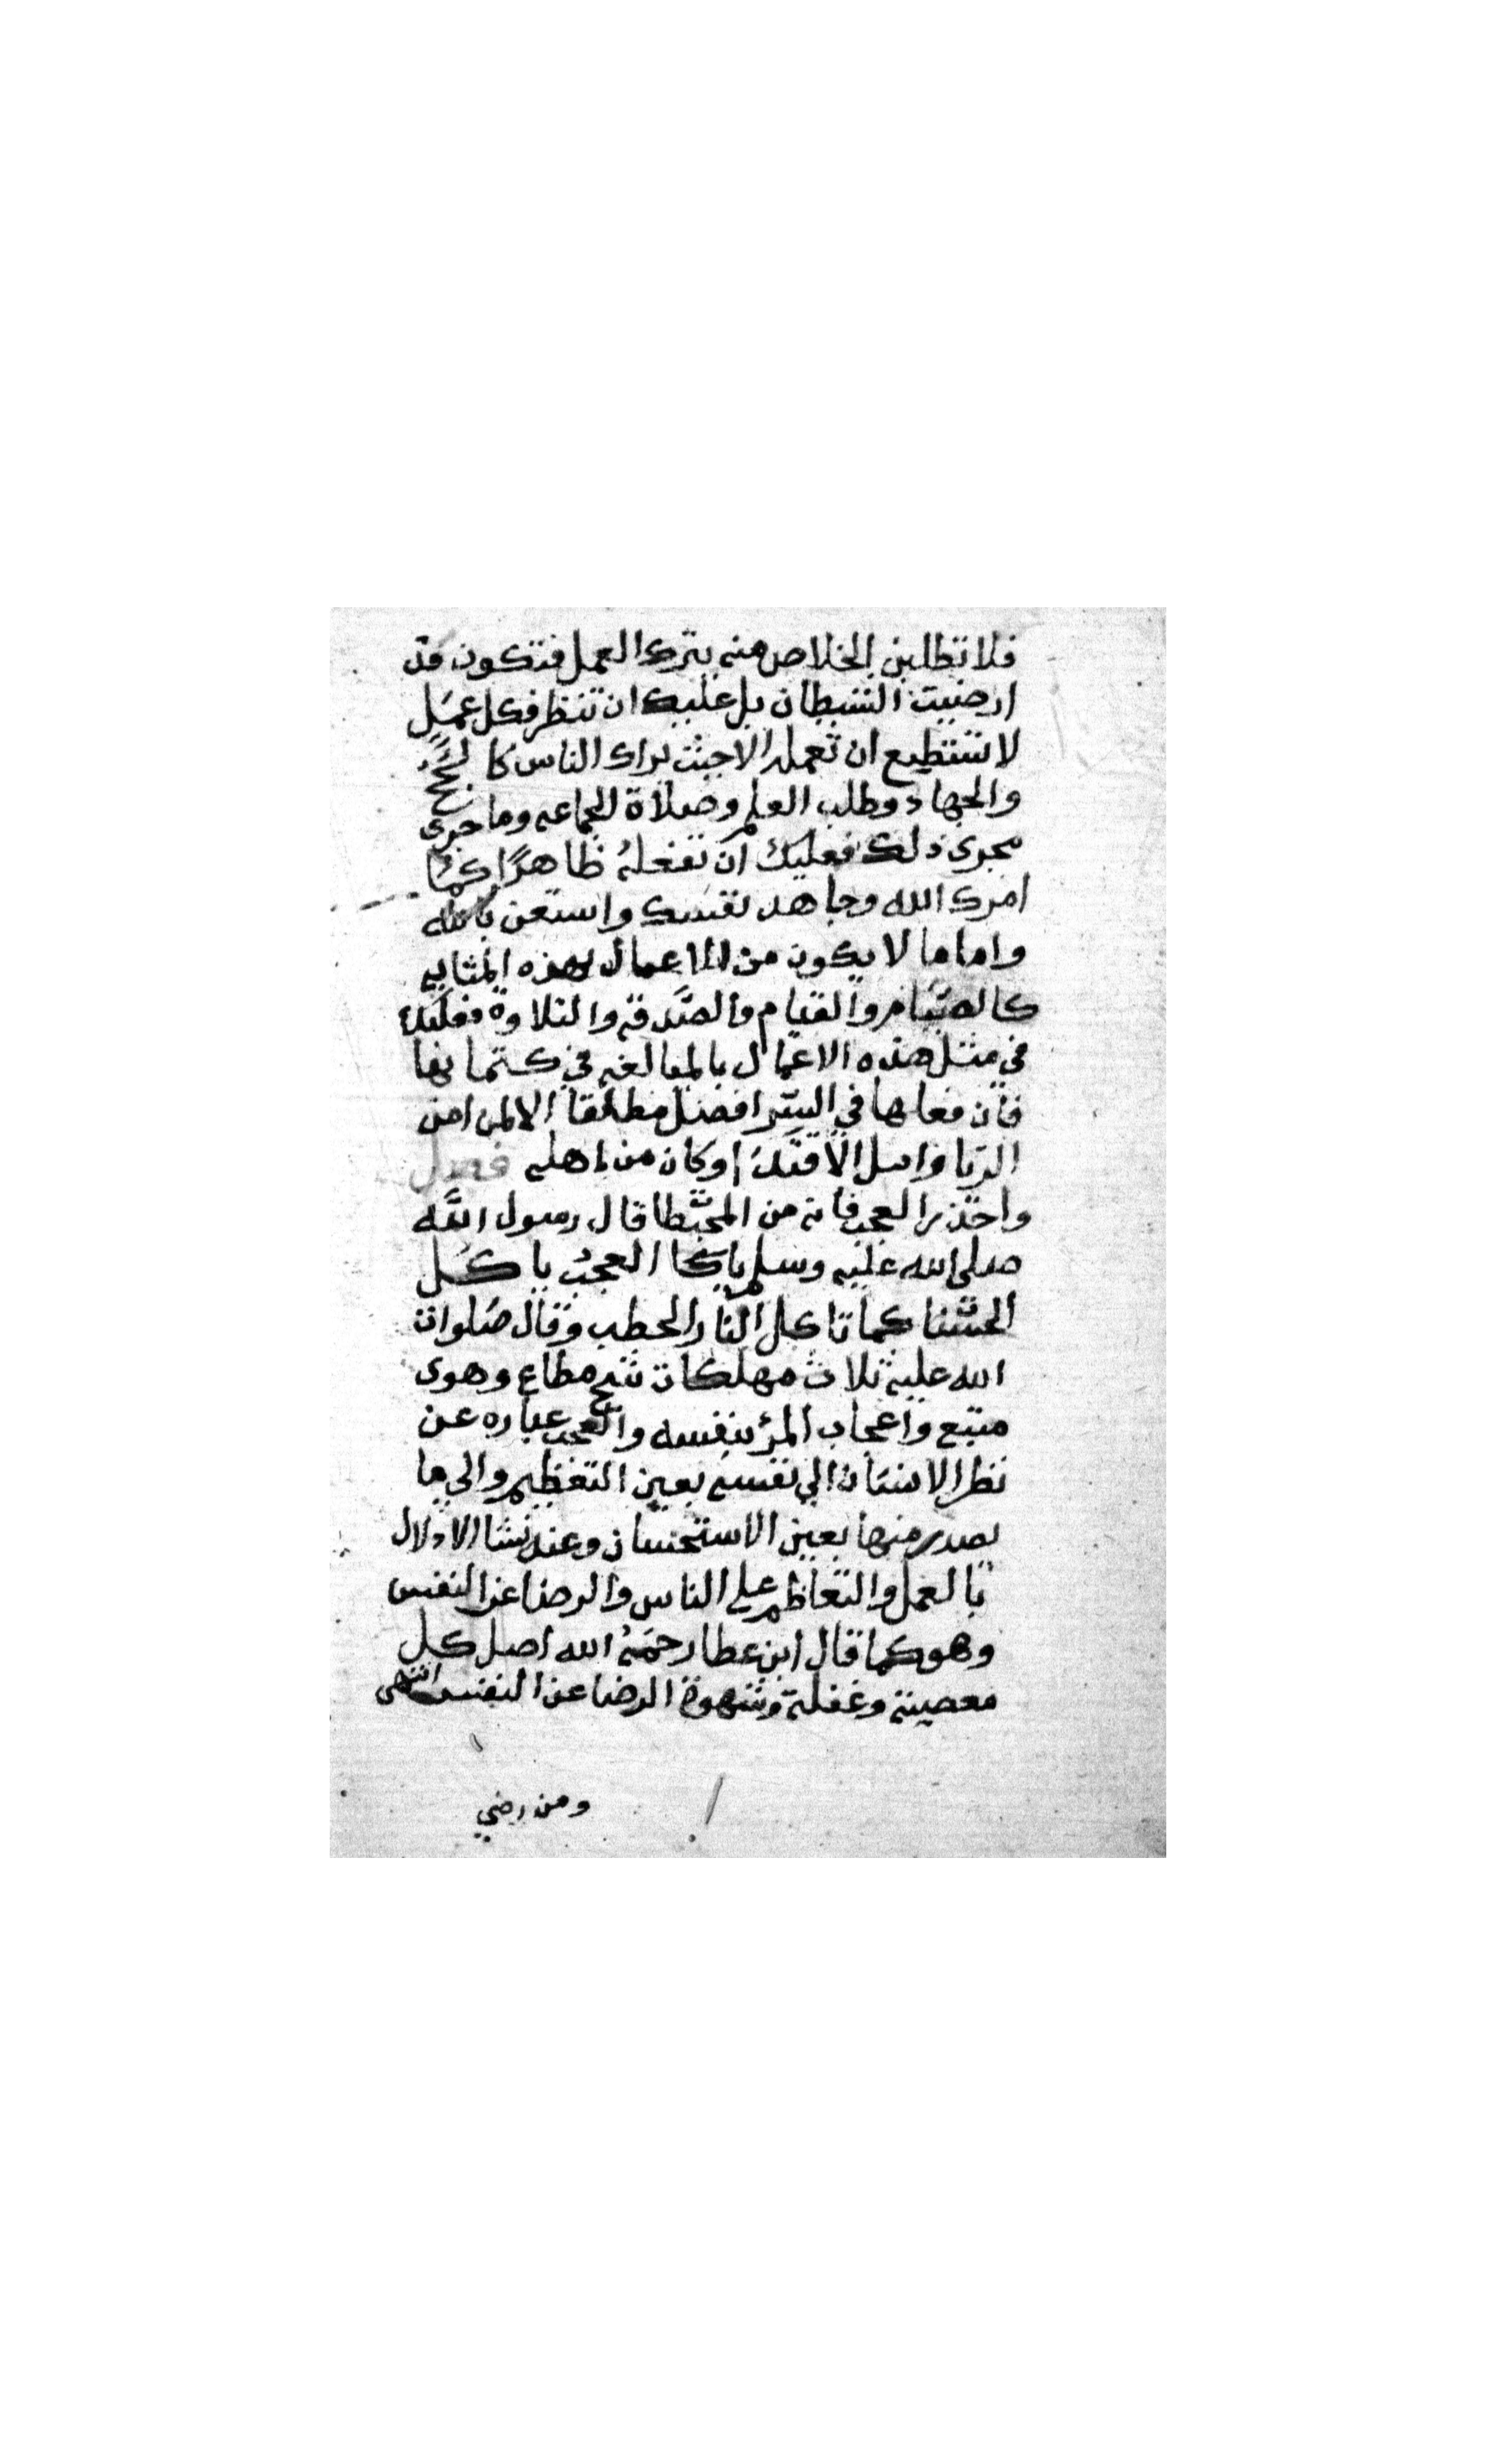 فلا تطلبن الخلاص منه بترك العمل فتكون قد
ارضيت الشيطان بل عليك ان تنظر فكل عمل
لا تستطيع ان تعمله الا حيث يراك الناس كالحج
والجهاد وطلب العلم وصلاة الجماعه وما جرى
مجرى ذلك فعليك ان تفعله ظاهرًا كما
امرك الله وجاهد نفسك واستعن بالله
واما ما لا يكون من الاعمال بهذه المثابه
كالصيام والقيام والصدقه والتلاوة فعليك
في مثل هذه الاعمال بالمبالغه في كتمانها
فان فعلها في السر افضل مطلقا الا لمن امن
الريا وامل الاقتدَا وكان من اهله فصل
واحذر العجب فانه من المحبطا قال رسول الله
صلى الله عليه وسلم العجبُ ياكل
الحسنا كما تاكل النار الحطب وقال صلوات
الله عليه ثلاث مهلكات شح مطاع وهوى
متبع واعجاب المرؤ بنفسه والعجب عباره عن
نظر الانسان الي نفسه بعين التعظيم والي ما
يصدر منها بعين الاستحسان وعنه نشا الادلال
بالعمل والتعاظم على الناس والرضا عن النفس
وهو كما قال ابن عطا رحمهُ الله اصل كل
معصية وغفلة وشهوة الرضا عن النفس انتهى
ومن رضي